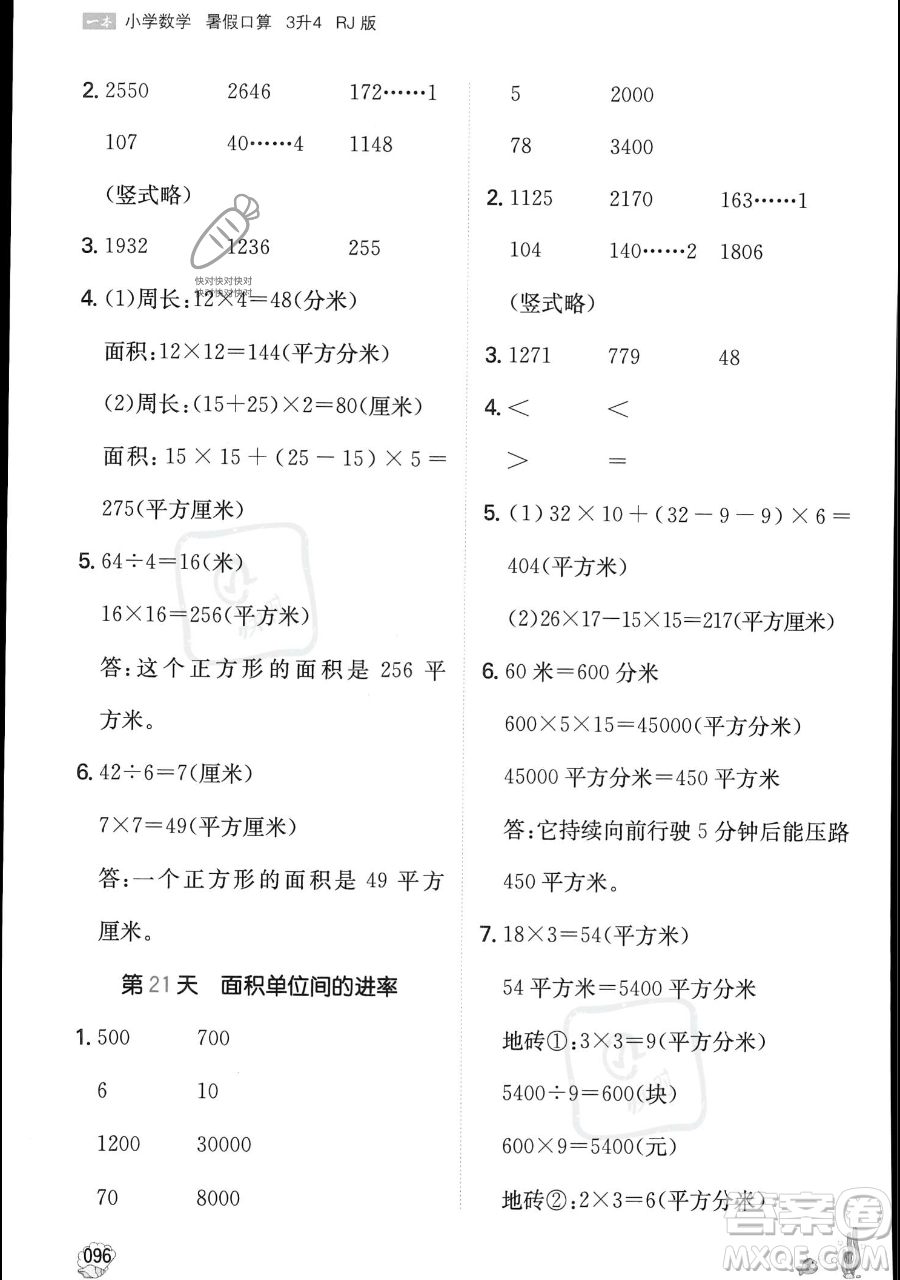 一本 小学数学 暑假口算 3升4 RJ版
2. 2550 2646 172……1
107 40……4 1148
(竖式略)
3. 1932 1236 255
快对快对快对
快对快对快对
4. (1)周长:12×4=48(分米)
面积:12×12=144(平方分米)
(2)周长:(15+25)×2=80(厘米)
面积:15×15+(25-15)×5=
275(平方厘米)
5. 64÷4=16(米)
16×16=256(平方米)
答:这个正方形的面积是 256 平
方米。
6. 42÷6=7(厘米)
7×7=49(平方厘米)
答:一个正方形的面积是 49 平方
厘米。
第21天 面积单位间的进率
1. 500 700
6 10
1200 30000
70 8000
096
5 2000
78 3400
2. 1125 2170 163……1
104 140……2 1806
(竖式略)
3. 1271 779 48
4. < <
> =
5. (1)32×10+(32-9-9)×6=
404(平方米)
(2)26×17-15×15=217(平方厘米)
6. 60 米=600 分米
600×5×15=45000(平方分米)
45000 平方分米=450 平方米
答:它持续向前行驶 5 分钟后能压路
450 平方米。
7. 18×3=54(平方米)
54 平方米=5400 平方分米
地砖①:3×3=9(平方分米)
5400÷9=600(块)
600×9=5400(元)
地砖②:2×3=6(平方分米)
答案圈
MXQE.COM